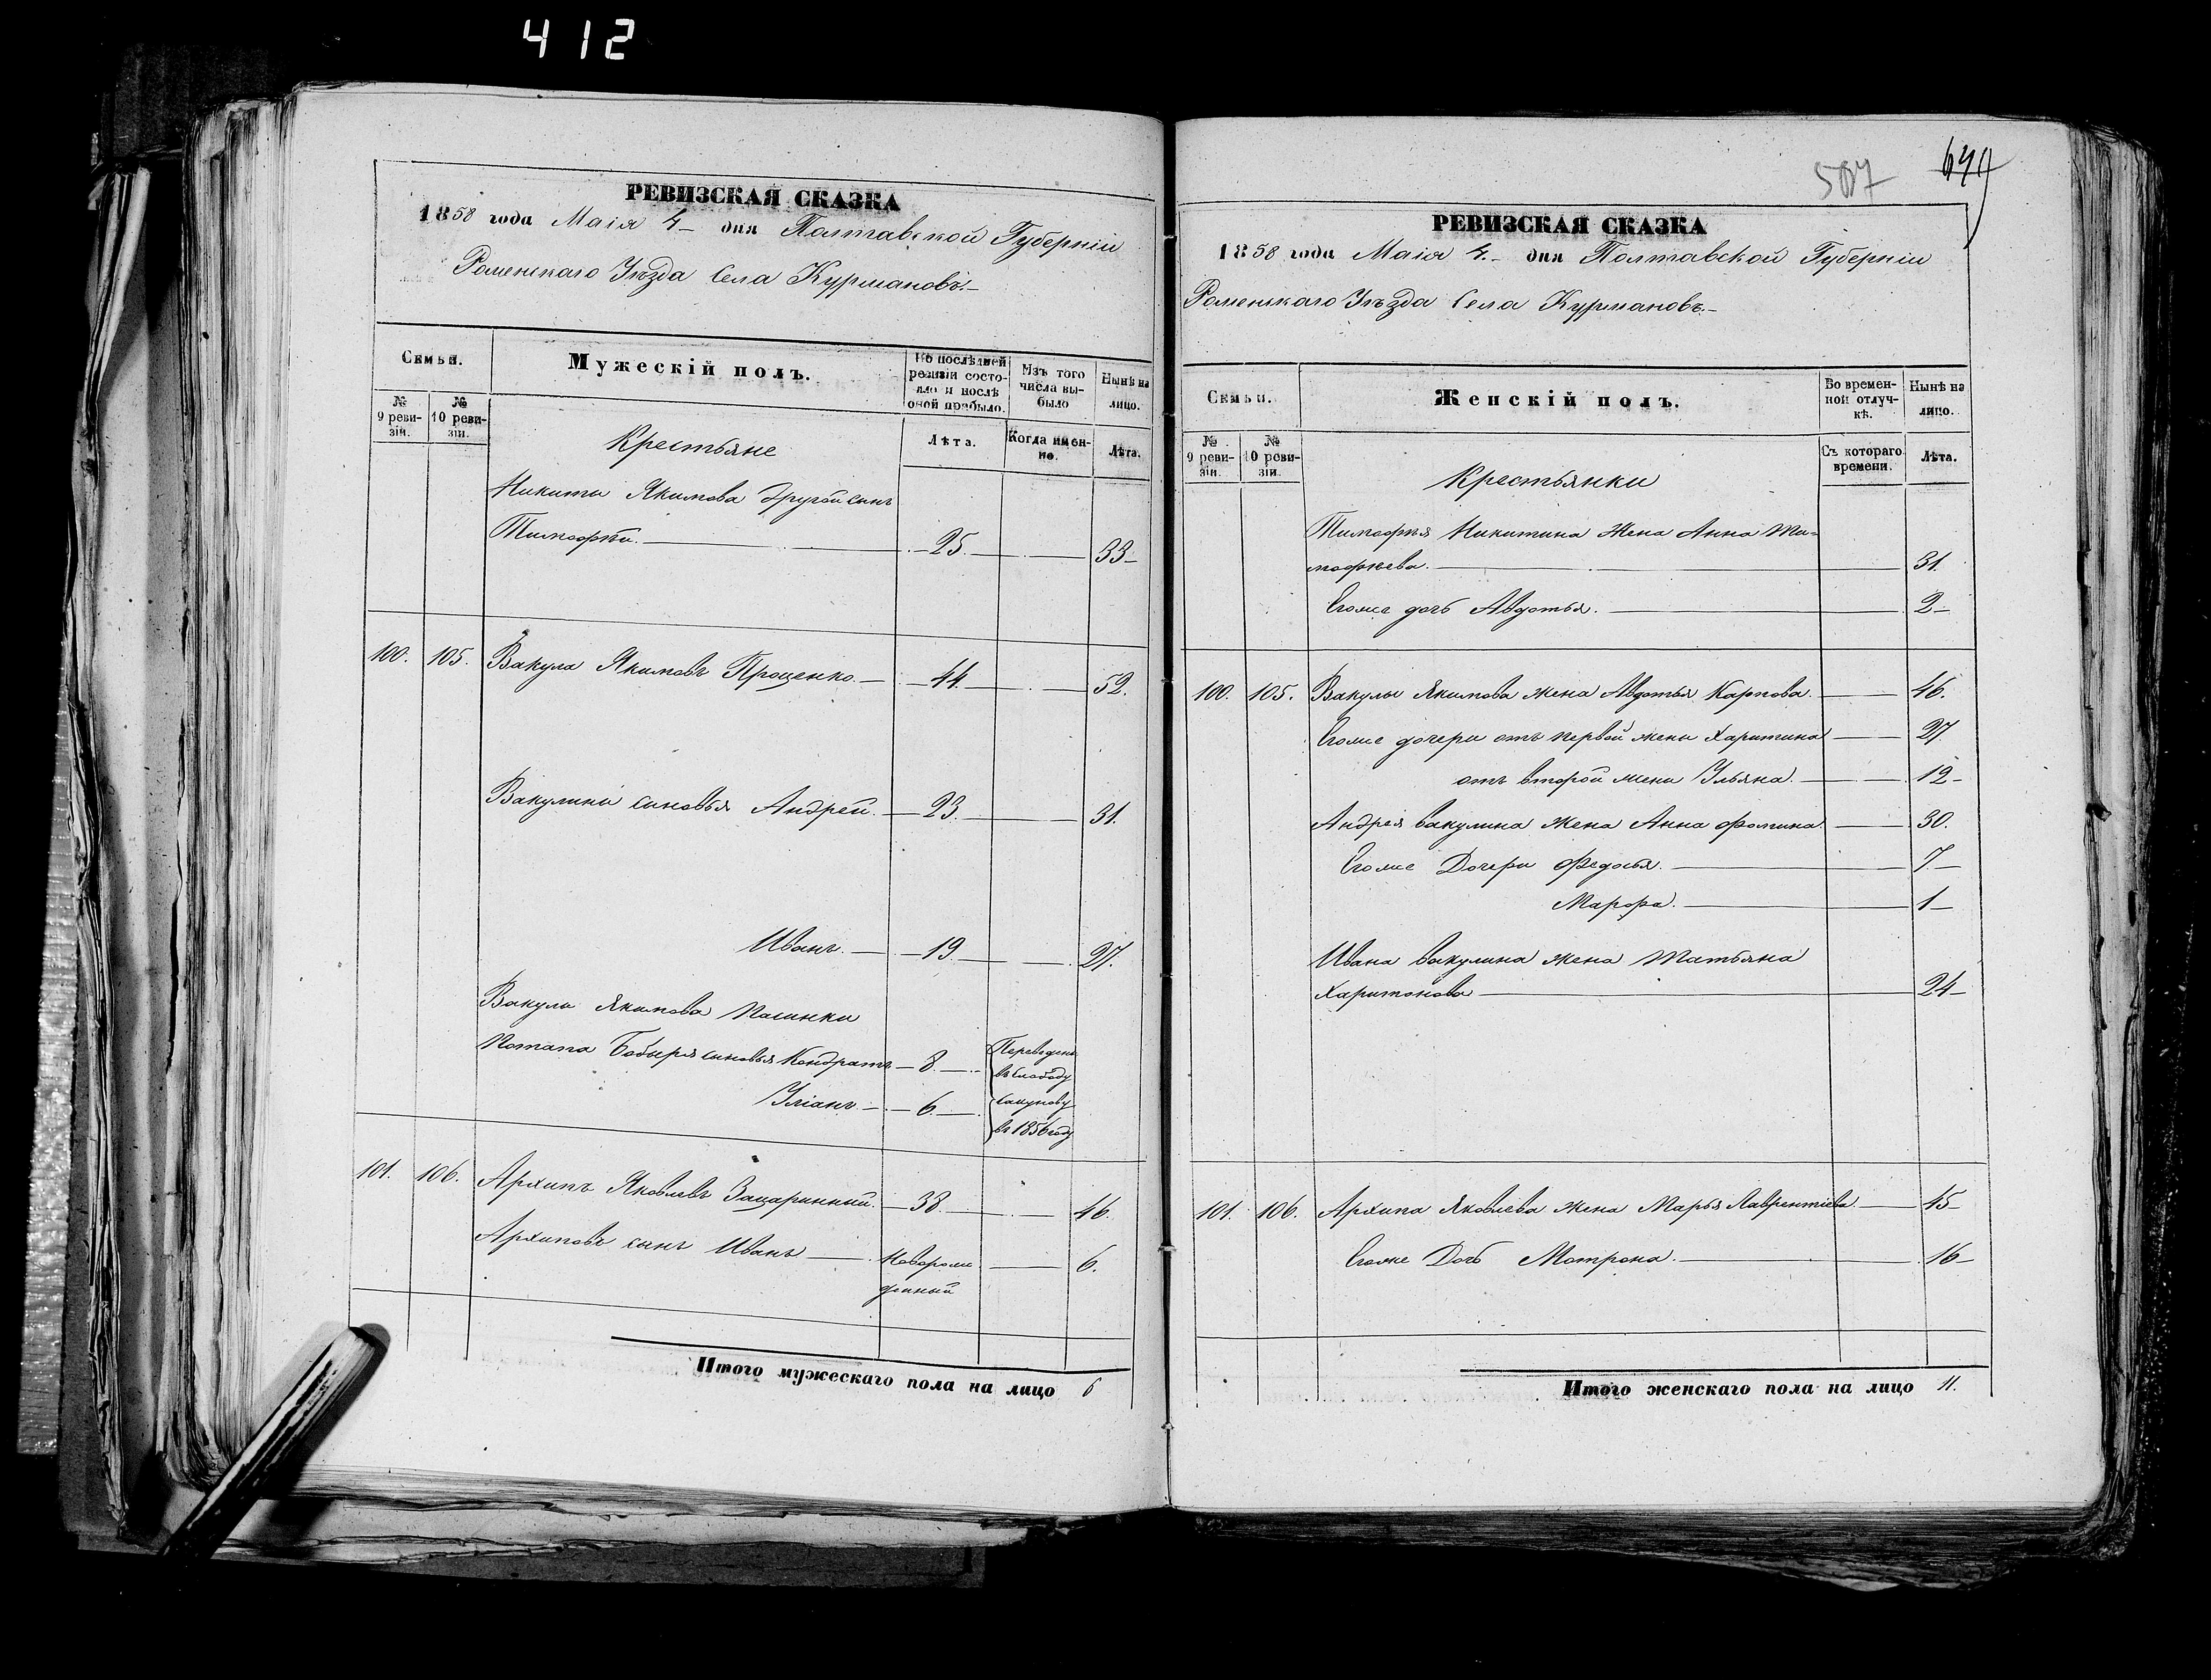 412
РЕВИЗСКАЯ СКАЗКА
1858 года Маія 4 дня Полтавской Губерніи
Роменскаго Уѣзда Села Курмановъ.
Семьи.
Мужескій полъ.
По послѣдней ревизіи состояло и послѣ оной прибыло.
Изъ того числа выбыло
Нынѣ на лицо.
№ 9 ревизіи.
№ 10 ревизіи.
Лѣта.
Когда именно.
Лѣта.
Крестьяне
Никиты Якимова другой сынъ
Тимофѣй. 25. 33
100. 105. Вакула Якимовъ Проценко. 44. 52.
Вакулины сыновья Андрей. 23. 31.
Иванъ. 19. 27.
Вакулы Якимова пасынки
Потапа Бобыря сыновья Кондратъ 8. Переведены
въ слободу
Уліанъ 6. Сакунову
въ 1856 году
101. 106. Архипъ Яковлевъ 38. 46.
Архиповъ сынъ Иванъ Новорож
денный 6.
Итого мужескаго пола на лицо 6
587
РЕВИЗСКАЯ СКАЗКА
1858 года Маія 4. дня Полтавской Губерніи
Роменскаго Уѣзда Села Курмановъ.
Семьи.
Женскій полъ.
Во временной отлучкѣ.
Нынѣ на лицо.
№ 9 ревизіи.
№ 10 ревизіи.
Съ котораго времени.
Лѣта.
Крестьянки
Тимофѣя Никитина жена Анна Ти=
мофѣева. 31.
Егоже дочь Авдотья. 2
100. 105. Вакулы Якимова жена Авдотья Карпова. 46.
Егоже дочери отъ первой жены Харитина 27
отъ второй жены Ульяна. 12
Андрея вакулина жена Анна Фомина. 30.
Егоже Дочери Федосья. 7
Марфа. 1
Ивана вакулина жена Татьяна
Харитонова 24
101. 106. Архипа Яковлева жена Марья Лаврентіева. 45
Егоже Дочь Мотрона. 16
Итого женскаго пола на лицо 11.